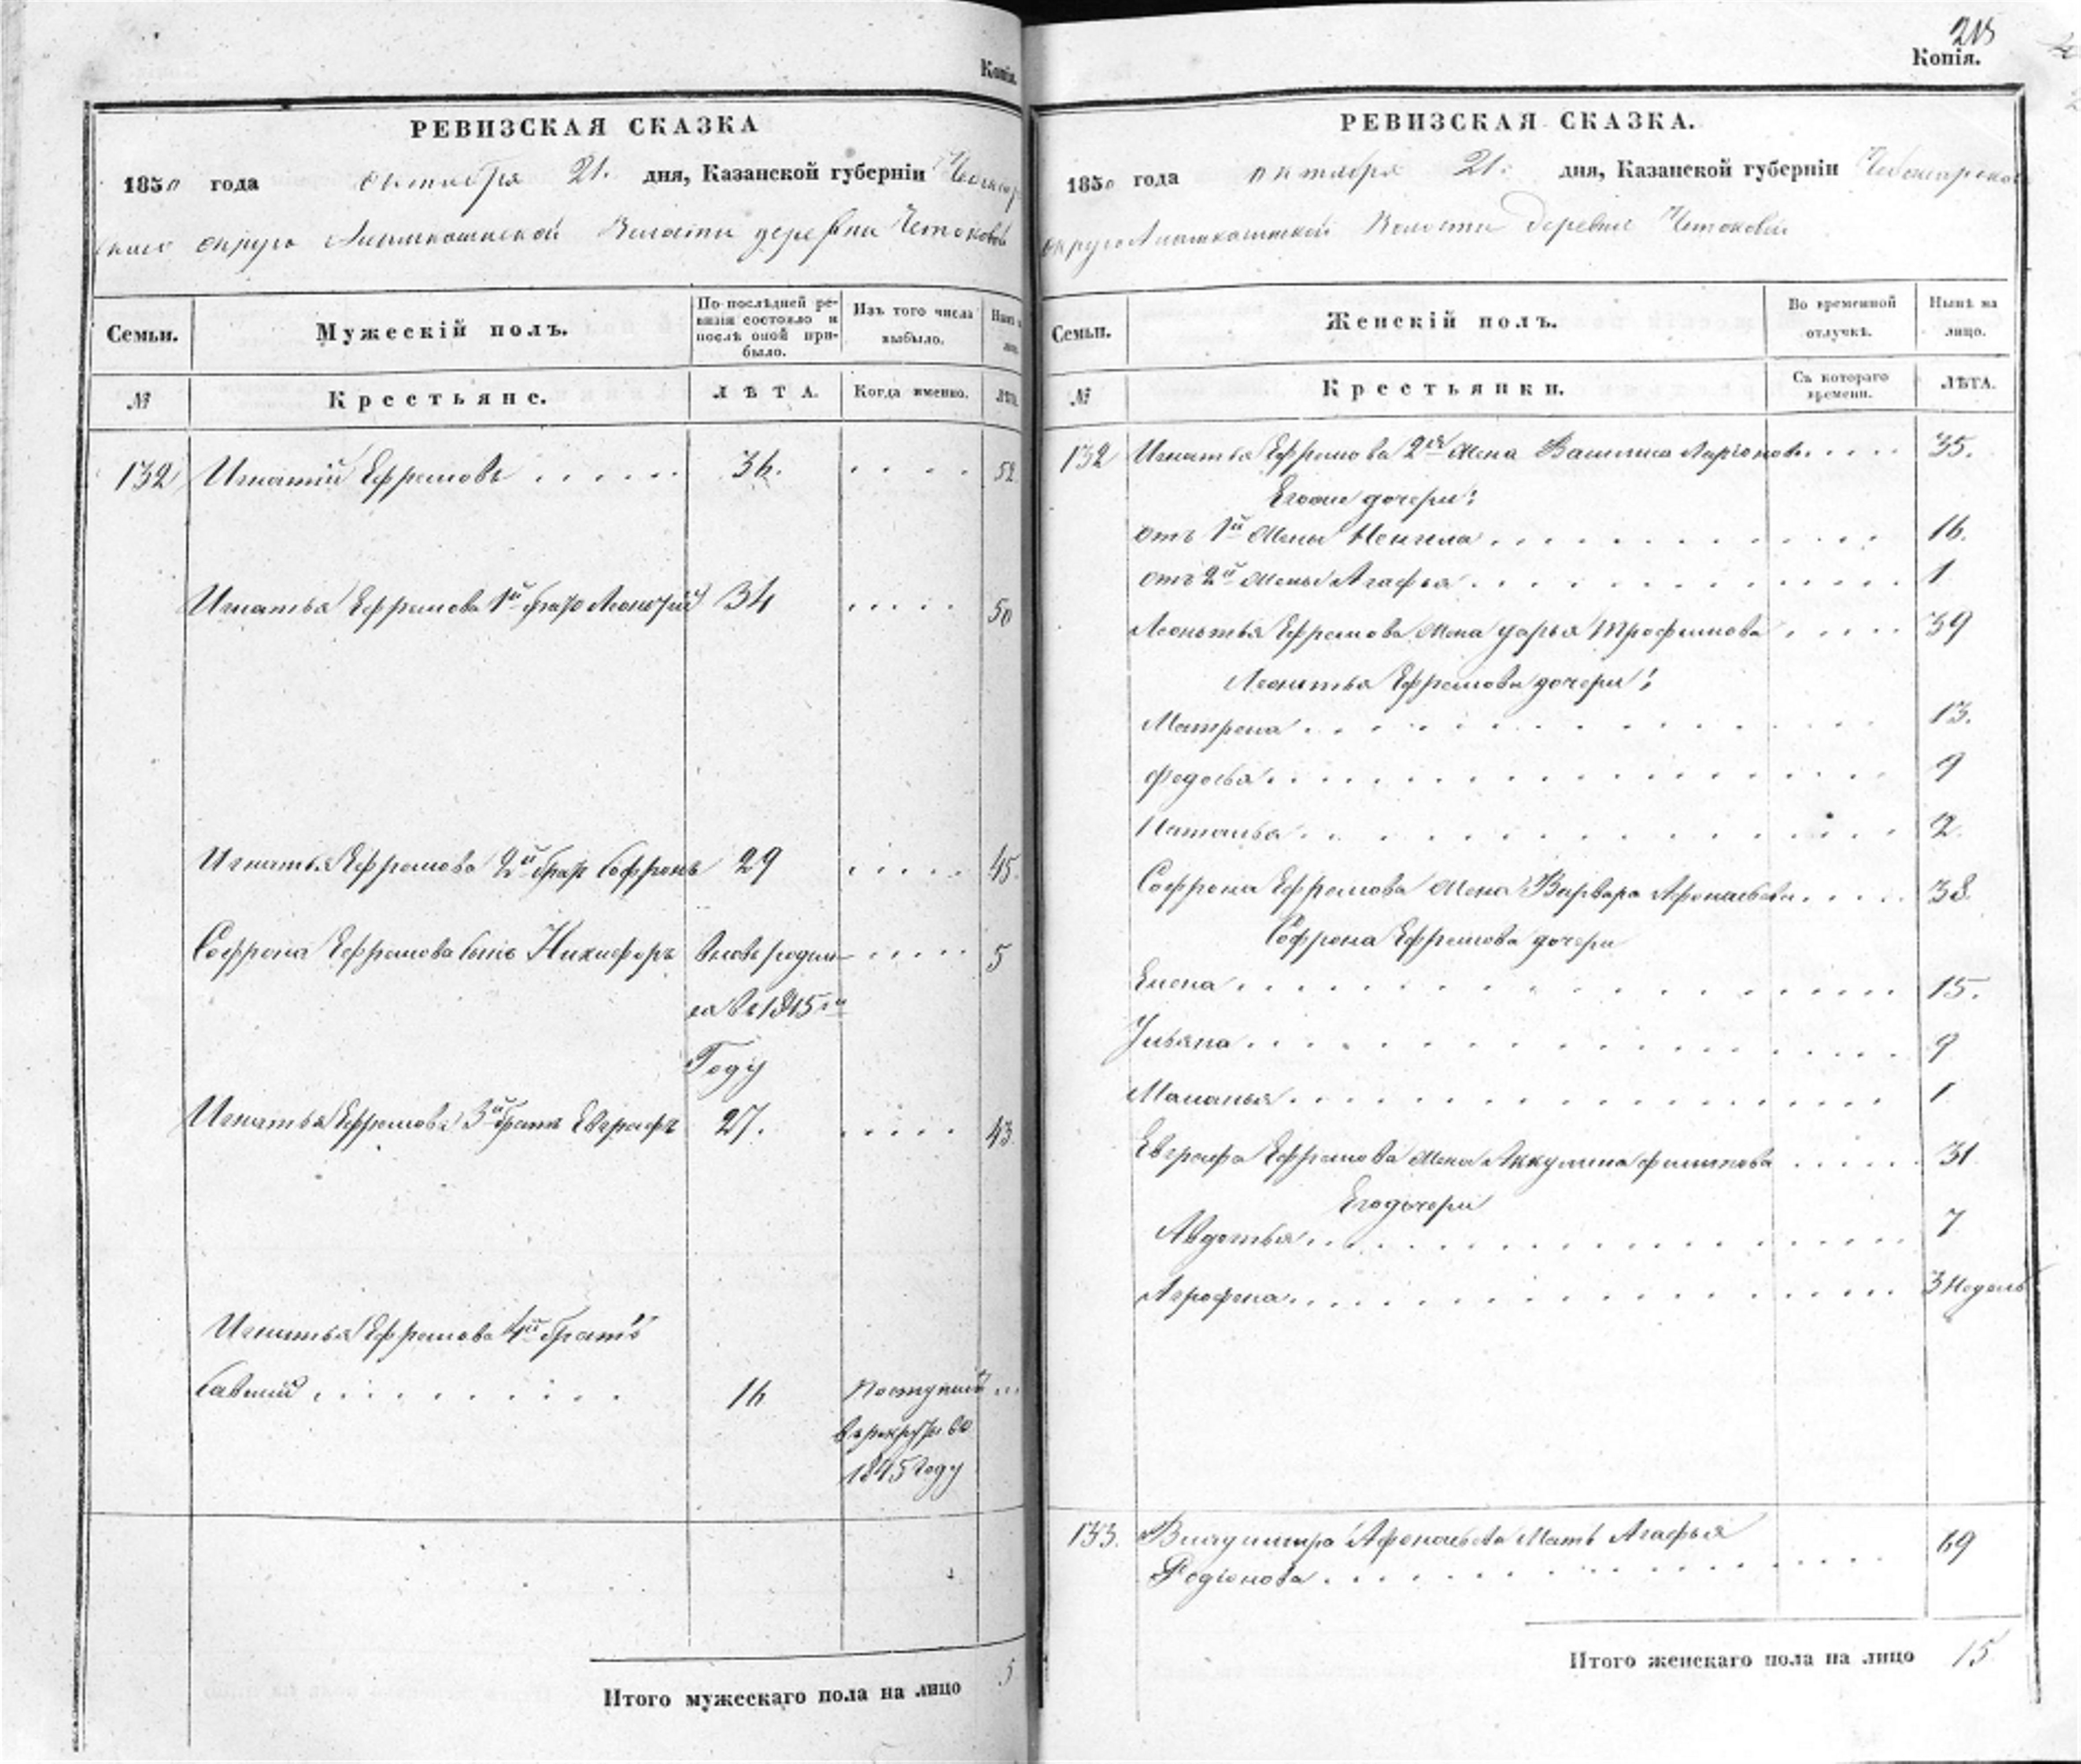 Копія.
РЕВИЗСКАЯ СКАЗКА
1850 года октября 21. дня, Казанской губерніи Чебоксар
скаго округа Волости деревни
Семьи.
Мужескій полъ.
По послѣдней ре-
визіи состояло и
послѣ оной при-
было.
Изъ того числа
выбыло.
Нынѣ
№
Крестьяне.
ЛѢТА.
Когда именно.
ЛѢТА
132 Игнатій Ефремовъ . . . . . . 36. . . . . 52
Игнатья Ефремова 1й братъ Леонтій 34 . . . . . 50
Игнатья Ефремова 2й брат Софронъ 29 . . . . . 45.
Софрона Ефремова сынъ Никифоръ вновь родил . . . . . 5
ся въ 1845м
Году
Игнатья Ефремова 3й братъ Евграфъ 27. . . . . . 43.
Игнатья Ефремова 4й братъ
Савелій . . . . . . . . . 16 Поступилъ . . .
въ рекруты въ
1845 Году
Итого мужескаго пола на лицо 5
215
Копія.
РЕВИЗСКАЯ СКАЗКА.
1850 года октября 21. дня, Казанской губерніи Чебоксарскаго
округа Волости деревни
Семьи.
Женскій полъ.
Во временной
отлучкѣ.
Нынѣ на
лицо.
№
Крестьянки.
Съ котораго
времени.
ЛѢТА.
132 Игнатья Ефремова 2я жена Василиса Ларіонова . . . . 35.
Егоже дочери:
отъ 1й жены Ненила . . . . . . . . . . . 16.
отъ 2й жены Агафья . . . . . . . . . . . 1
Леонтья Ефремова жена Дарья Трофимова . . . . . 39
Леонтья Ефремова дочери:
Матрена . . . . . . . . . . . . 13.
Федосья . . . . . . . . . . . . 9
Наталья . . . . . . . . . . . . 2.
Софрона Ефремова жена Варвара Афонасьева . . . . . 38.
Софрона Ефремова дочери
Елена . . . . . . . . . . . . 15.
Ульяна . . . . . . . . . . . . 9
Маланья . . . . . . . . . . . . 1
Евграфа Ефремова жена Аккулина Филипова . . . . . 31.
Его дочери
Авдотья . . . . . . . . . . . . 7
Агрофена . . . . . . . . . . . . 3 Недель
133. Владимира Афонасьева Мать Агафья
Родіонова . . . . . . . . . . . . 69
Итого женскаго пола на лицо 15